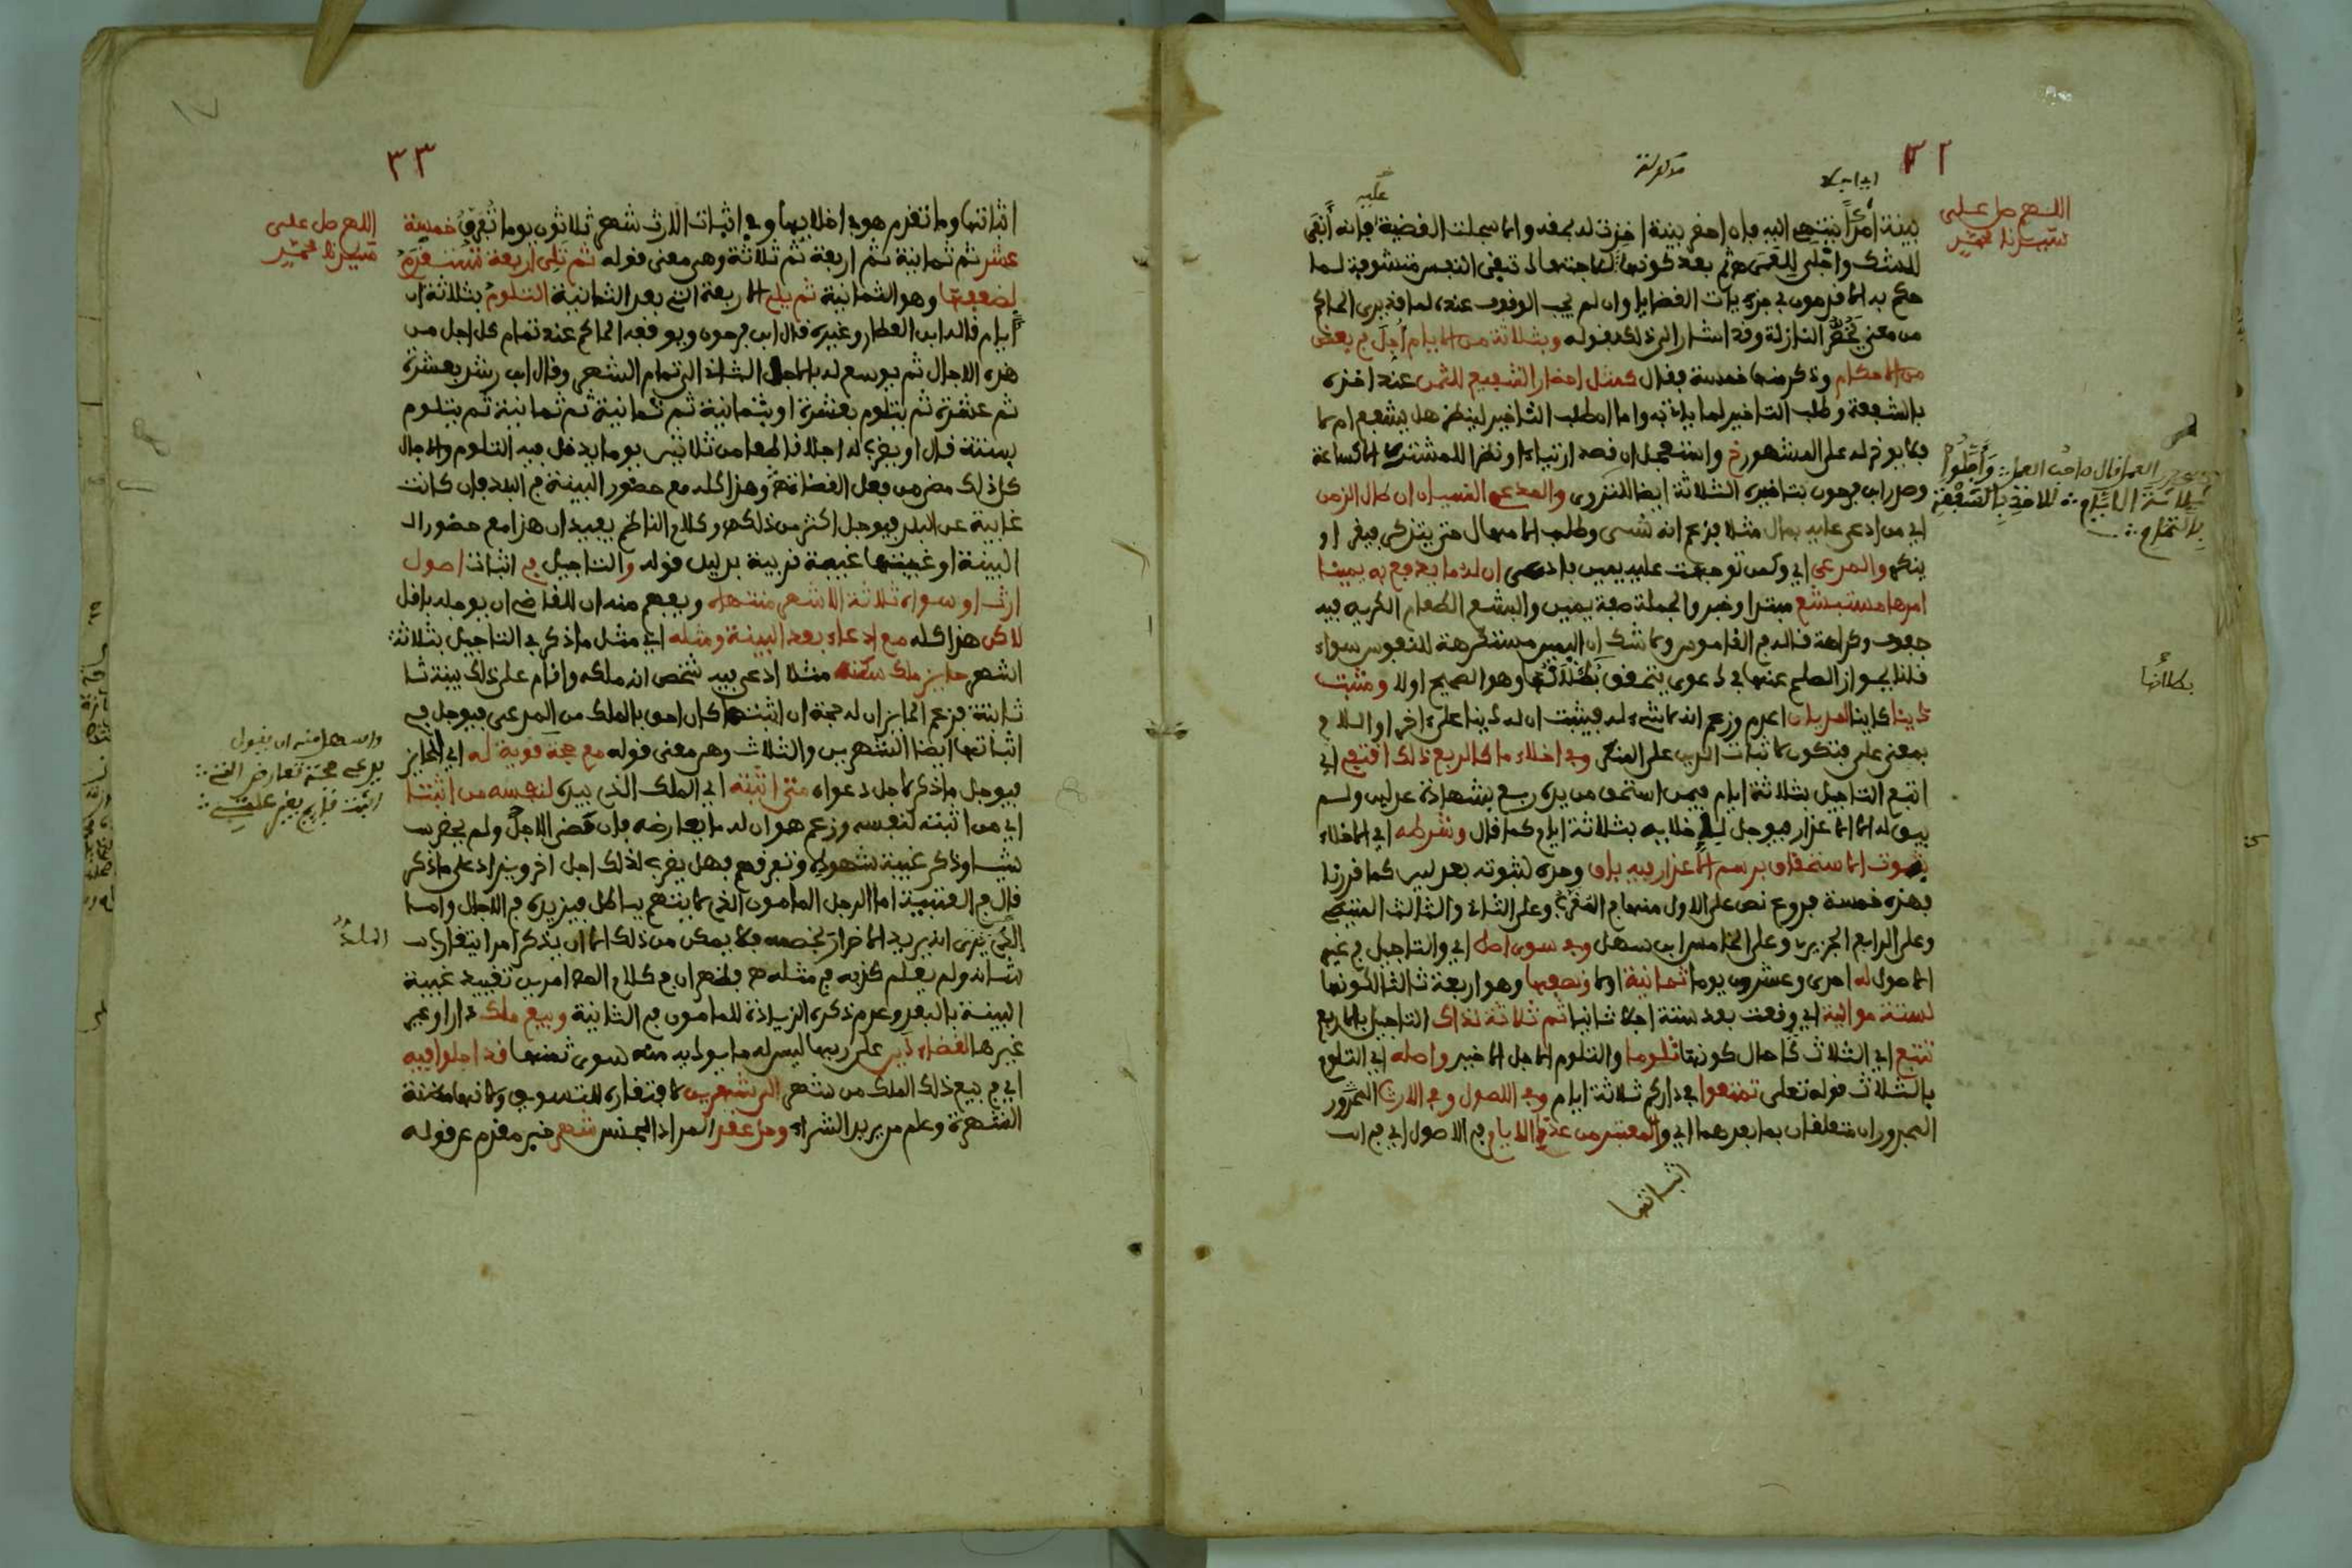 ٣٢
اللهم صل على
سيدنا محمد
بينة امدا ينتهى اليه فإن احضر بينة اخرت له بحقه والا سجلت القضية فإنه أنفى
للشك واجلى للعمى ثم بعد كونها لحاجتها له تبقى النفس متشوفة لما
حكم به الاقدمون في جزءيات القضايا وان لم يجب الوقوف عنده لما قد يرى الحاكم
من معنى يخص النازلة وقد اشار الى ذلك بقوله وبثلاثة من الايام أجل في بعض
من الاحكام وذكر منها خمسة فقال كمثل احضار الشفيع للثمن عند اخذه
بالشفعة وطلب التاخير لما ياتي به واما ان طلب التاخير لينظر هل يشفع ام لا
فلا يوخر له على المشهور خ واستعجل ان قصد ارتياء او نظرا للمشترى الا كساعة
وصدر ابن فرحون بتاخيره الثلاثة ايضا للتروى والمدعي النسيان ان طال الزمن
اي من ادعي عليه بمال مثلا فزعم انه نسى وطلب الامهال حتى يتذكر فيقر او
ينكر والمدعى اي وكمن توجهت عليه يمين فادعى ان له ما يدفع به يمينا
امرها مستبشع مبتدا وخبر والجملة صفة يمين والبشع الطعام الكريه فيه
جفوف وكراهة قاله في القاموس ولا شك ان اليمين مستكرهة للنفوس سواء
قلنا بجواز الصلح عنها في دعوى يتحقق بطلانها وهو الصحيح اولا ومثبت
دينا لمديان اعدم وزعم انه لا شيء له فيثبت ان له دينا على اخر او اللام
بمعنى على فتكون لاثبات الدين على المنكر وفي اخلاء ما كالربع ذلك اقتفي اي
اتبع التاجيل بثلاثة ايام فيمن استحق من يده ربع بشهادة عدلين ولم
يبق له الا الاعذار فيوجل لاخلايه بثلاثة ايام كما قال وشرطه اي الاخلاء
ثبوت الاستحقاق برسم الاعذار فيه باق وحده لثبوته بعدلين كما قررنا
فهذه خمسة فروع نص على الاول منها في المقرب وعلى الثاني والثالث المتيطي
وعلى الرابع الجزيرى وعلى الخامس ابن سهل وفي سوى اصل اي والتاجيل في غير
الاصول له احدى وعشرون يوما ثمانية اولا ونصفها وهو اربعة ثالثا لكونها
لستة موالية اي وقعت بعد ستة اجلا ثانيا ثم ثلاثة لذاك التاجيل بالاربع
تتبع اي الثلاث حال كونها تلوما والتلوم الاجل الاخير واصله اي التلوم
بالثلاث قوله تعلى تمتعوا في داركم ثلاثة ايام وفي الاصول وفي الارث المجرور
المجروران متعلقان بما بعدهما اي والمعتبر من عدة الايام في الاصول اي في اث
اثباتها
العمل قال صاحب العمل وأجلوا
ثلاثة الايام للاخذ بالشفعة
بالتمام
بطلانها
٣٣
اللهم صل على
سيدنا محمد
اثباتها وما تقدم هو في اخلايها وفي اثبات الارث شهر ثلاثون يوما تفرق خمسة
عشر ثم ثمانية ثم اربعة ثم ثلاثة وهو معنى قوله ثم تلي اربعة مستقدمه
لضعفها وهو الثمانية ثم يلي الاربعة التي بعد الثمانية التلوم بثلاثة
ايام قاله ابن العطار وغيره قال ابن فرحون ويوقفه الحاكم عند تمام كل اجل من
هذه الاجال ثم يوسع له بالاجل الثاني الى تمام الشهر وقال ابن رشد بعشرة
ثم عشرة ثم يتلوم بعشرة او بثمانية ثم ثمانية ثم ثمانية ثم يتلوم
بستة قال او يضرب له اجلا قاطعا من ثلاثين يوما يدخل فيه التلوم والاجال
كل ذلك مضى من فعل القضاة وهذا كله مع حضور البينة في البلد فإن كانت
غايبة عن البلد فيوجل اكثر من ذلك وكلام الناظم يفيد ان هذا مع حضور ال
البينة او غيبتها غيبة قريبة بدليل قوله والتاجيل في اثبات اصول
ارث او سواه ثلاثة الاشهر منتهاه ويفهم منه ان للقاضي ان يوجله باقل
لاكن هذا كله مع ادعاء بعد البينة ومثله اي مثل ما ذكر في التاجيل بثلاثة
اشهر حايز ملك سكنه مثلا ادعى فيه شخص انه ملكه واقام على ذلك بينة ثا
ثابتة فزعم الحايز ان له حجة ان اثبتها كان احق بالملك من المدعى فيوجل في
اثباتها ايضا الشهرين والثلاث وهو معنى قوله مع حجة قوية له اي الحايز
فيوجل ما ذكر لاجل دعواه متى اثبته اي الملك الذى بيده لنفسه من اثبتا
اي من اثبته لنفسه وزعم هو ان له ما يعارضه فإن قضى الاجل ولم يحضر
شيئا وذكر غيبة شهوده وتفرقهم فهل يضرب لذلك اجل اخر ويزاد على ما ذكر
قال في العتبية اما الرجل المامون الذى لا يتهم بباطل فيزيده في الاجال واما
الذى يرى انه يريد الاضرار بخصمه فلا يمكن من ذلك الا ان يذكر امرا يتقارب
شانه ولم يعلم كذبه في مثله فظهر ان في كلام الامرين تقييد غيبة
البينة بالبعد وعدم ذكره الزيادة للمامون في الثانية وبيع ملك دارا وغير
غيرها لقضاء دين على ربها ليس له ما يودى منه سوى ثمنها قد اجلوا فيه
اي في بيع ذلك الملك من شهر الى شهرين لافتقاره للتسويق ولانها مظنة
الشهرة وعلم من يريد الشراء وحل عقد المراد الجنس شهر خبر مقدم عن قوله
واسهل منه ان يقول
يدعي حجة تعارض التي